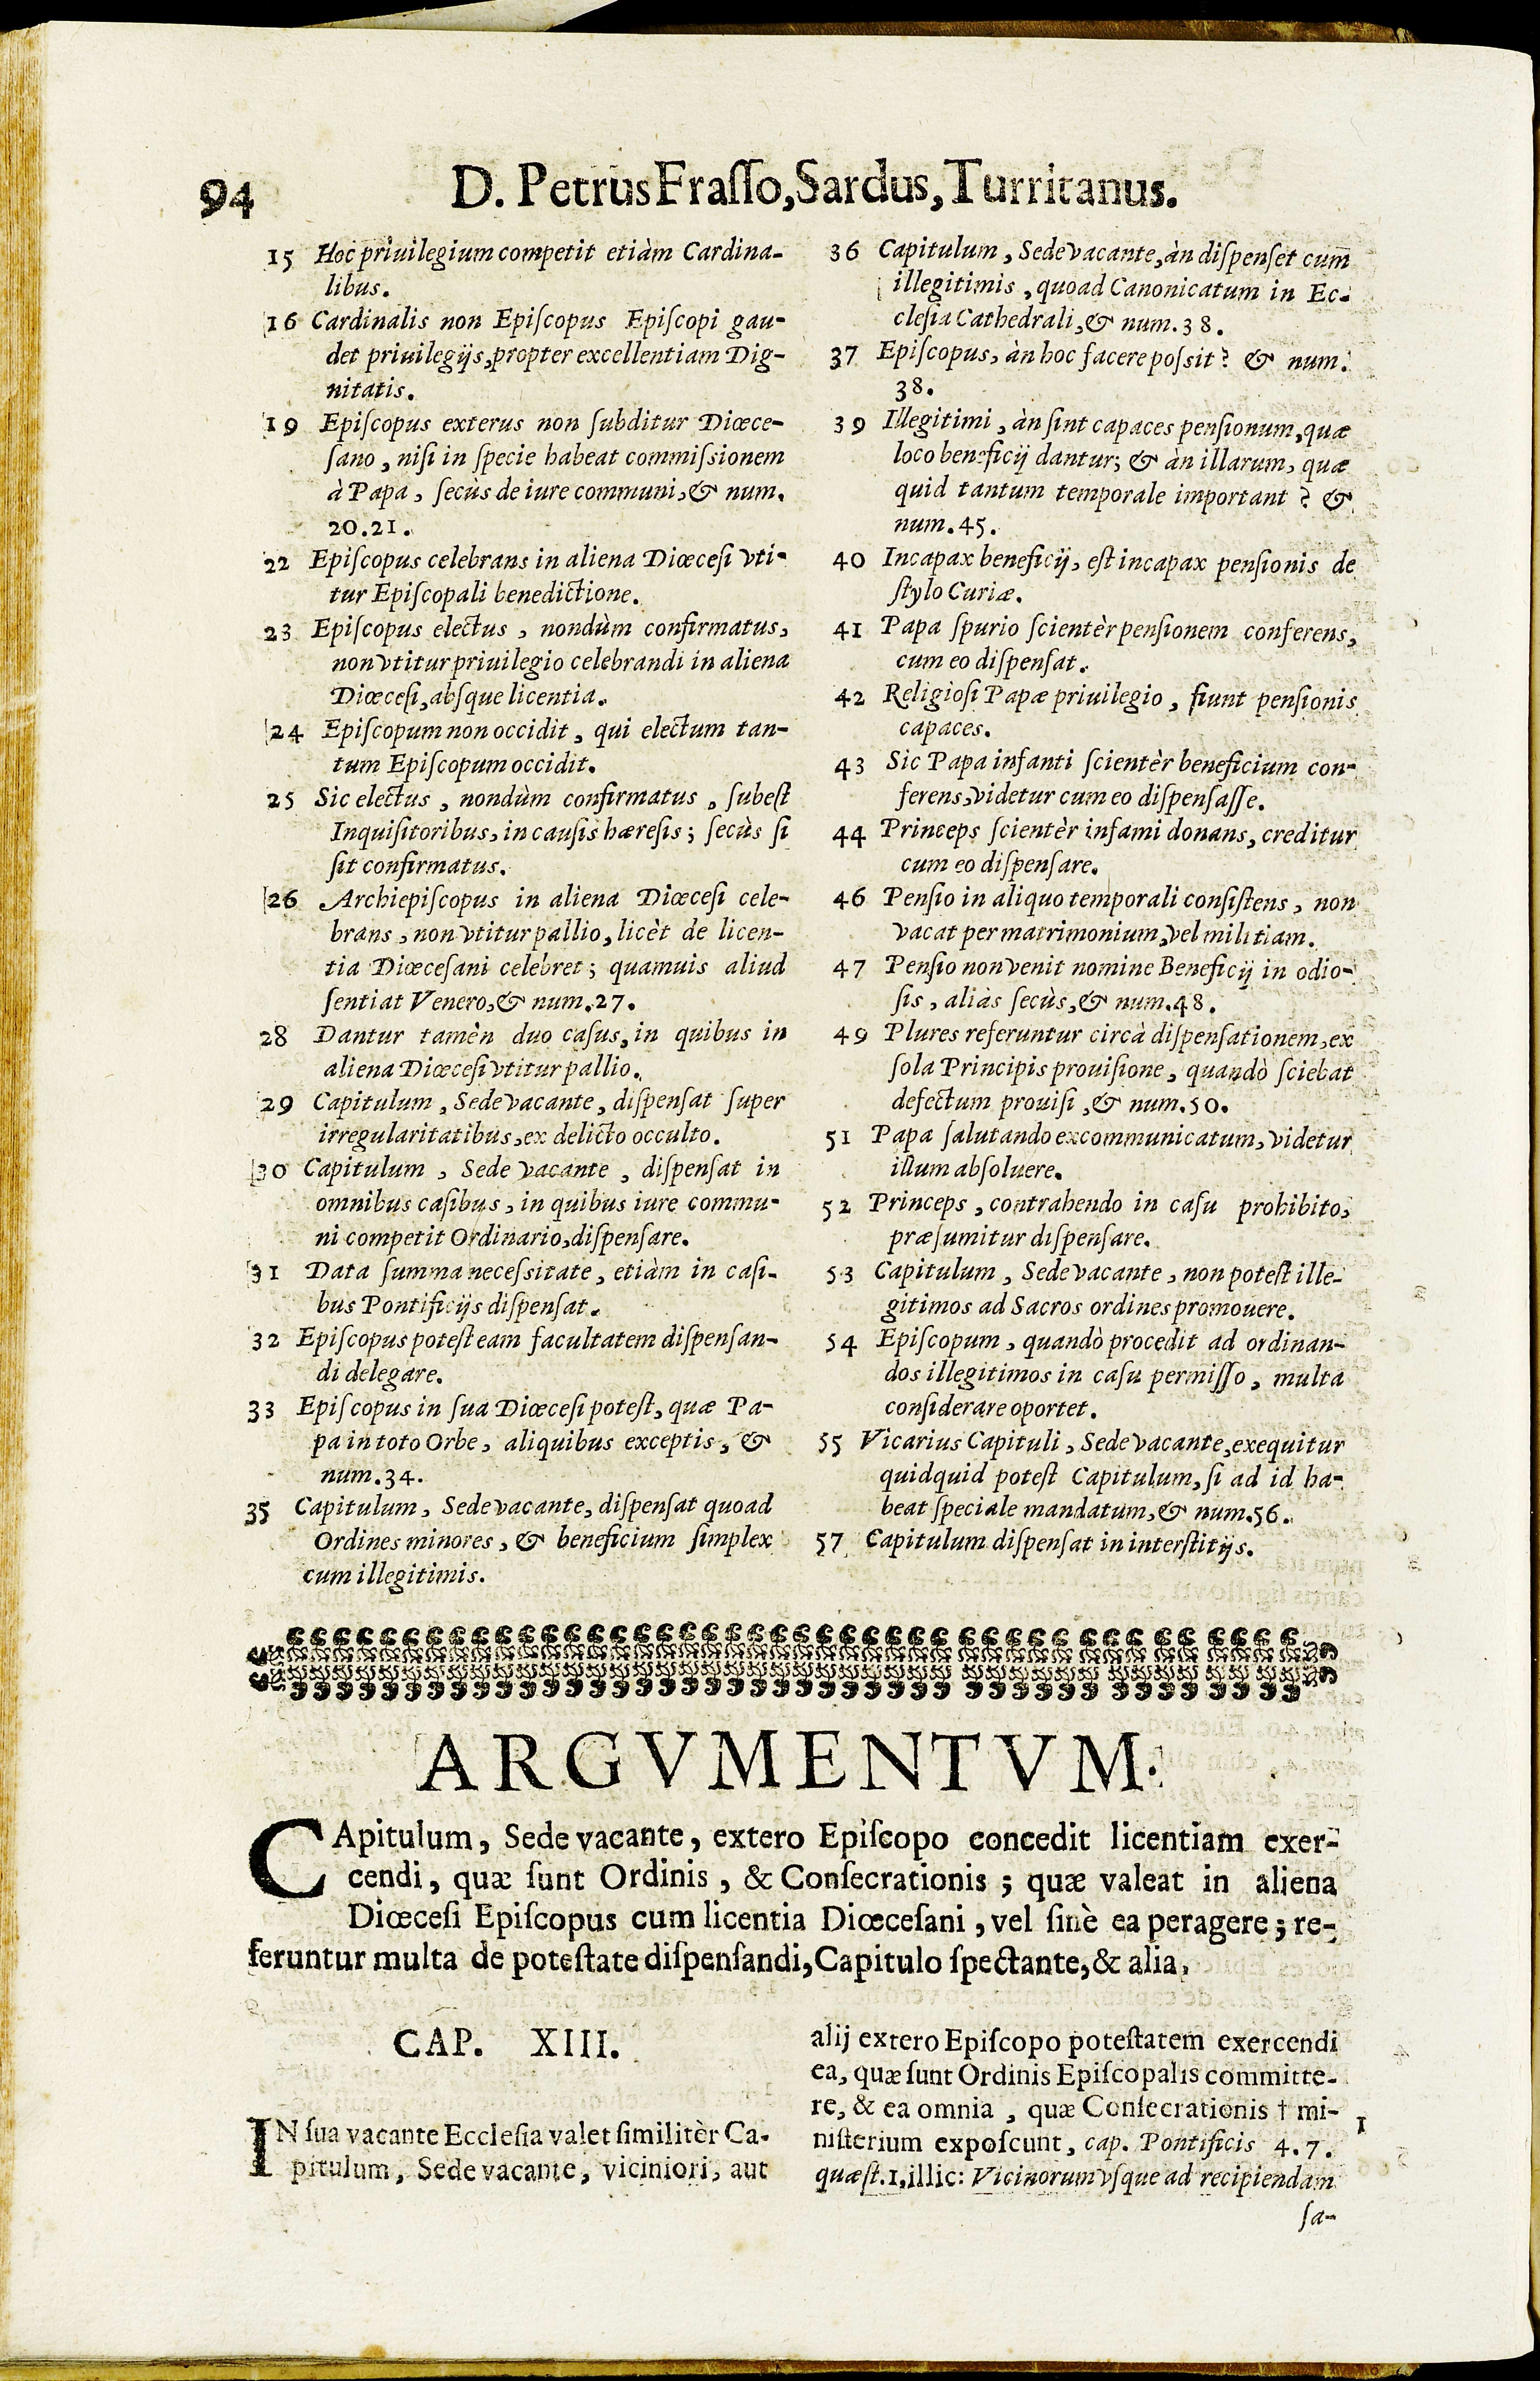 94
D. Petrus Frasso, Sardus, Turritanus.
15 Hoc priuilegium competit etiàm Cardina-
libus.
16 Cardinalis non Episcopus Episcopi gau-
det priuilegijs, propter excellentiam Dig-
nitatis.
19 Episcopus exterus non subditur Diœce-
sano, nisi in specie habeat commissionem
à Papa, secùs de iure communi, & num.
20.21.
22 Episcopus celebrans in aliena Diœcesi vti-
tur Episcopali benedictione.
23 Episcopus electus, nondùm confirmatus,
non vtitur priuilegio celebrandi in aliena
Diœcesi, absque licentia.
24 Episcopum non occidit, qui electum tan-
tum Episcopum occidit.
25 Sic electus, nondùm confirmatus, subest
Inquisitoribus, in causis hæresis; secùs si
sit confirmatus.
26 Archiepiscopus in aliena Diœcesi cele-
brans, non vtitur pallio, licèt de licen-
tia Diœcesani celebret; quamuis aliud
sentiat Venero, & num.27.
28 Dantur tamèn duo casus, in quibus in
aliena Diœcesi vtitur pallio.
29 Capitulum, Sede vacante, dispensat super
irregularitatibus, ex delicto occulto.
30 Capitulum, Sede vacante, dispensat in
omnibus casibus, in quibus iure commu-
ni competit Ordinario, dispensare.
31 Data summa necessitate, etiàm in casi-
bus Pontificijs dispensat.
32 Episcopus potest eam facultatem dispensan-
di delegare.
33 Episcopus in sua Diœcesi potest, quæ Pa-
pa in toto Orbe, aliquibus exceptis, &
num.34.
35 Capitulum, Sede vacante, dispensat quoad
Ordines minores, & beneficium simplex
cum illegitimis.
36 Capitulum, Sede vacante, àn dispenset cum
illegitimis, quoad Canonicatum in Ec-
clesia Cathedrali, & num.38.
37 Episcopus, àn hoc facere possit? & num.
38.
39 Illegitimi, àn sint capaces pensionum, quæ
loco beneficij dantur; & àn illarum, quæ
quid tantum temporale important? &
num.45.
40 Incapax beneficij, est incapax pensionis de
stylo Curiæ.
41 Papa spurio scientèr pensionem conferens,
cum eo dispensat.
42 Religiosi Papæ priuilegio, fiunt pensionis
capaces.
43 Sic Papa infanti scientèr beneficium con-
ferens, videtur cum eo dispensasse.
44 Princeps scientèr infami donans, creditur
cum eo dispensare.
46 Pensio in aliquo temporali consistens, non
vacat per matrimonium, vel militiam.
47 Pensio non venit nomine Beneficij in odio-
sis, aliàs secùs, & num.48.
49 Plures referuntur circà dispensationem, ex
sola Principis prouisione, quandò sciebat
defectum prouisi, & num.50.
51 Papa salutando excommunicatum, videtur
illum absoluere.
52 Princeps, contrahendo in casu prohibito,
præsumitur dispensare.
53 Capitulum, Sede vacante, non potest ille-
gitimos ad Sacros ordines promouere.
54 Episcopum, quandò procedit ad ordinan-
dos illegitimos in casu permisso, multa
considerare oportet.
55 Vicarius Capituli, Sede vacante, exequitur
quidquid potest Capitulum, si ad id ha-
beat speciale mandatum, & num.56.
57 Capitulum dispensat in interstitijs.
ARGVMENTVM.
CApitulum, Sede vacante, extero Episcopo concedit licentiam exer-
cendi, quæ sunt Ordinis, & Consecrationis; quæ valeat in aliena
Diœcesi Episcopus cum licentia Diœcesani, vel sinè ea peragere; re-
feruntur multa de potestate dispensandi, Capitulo spectante, & alia.
CAP. XIII.
IN sua vacante Ecclesia valet similitèr Ca-
pitulum, Sede vacante, viciniori, aut
alij extero Episcopo potestatem exercendi
ea, quæ sunt Ordinis Episcopalis committe-
re, & ea omnia, quæ Consecrationis † mi- 1
nisterium exposcunt, cap. Pontificis 4. 7.
quæst.1, illic: Vicinorum vsque ad recipiendam
sa-